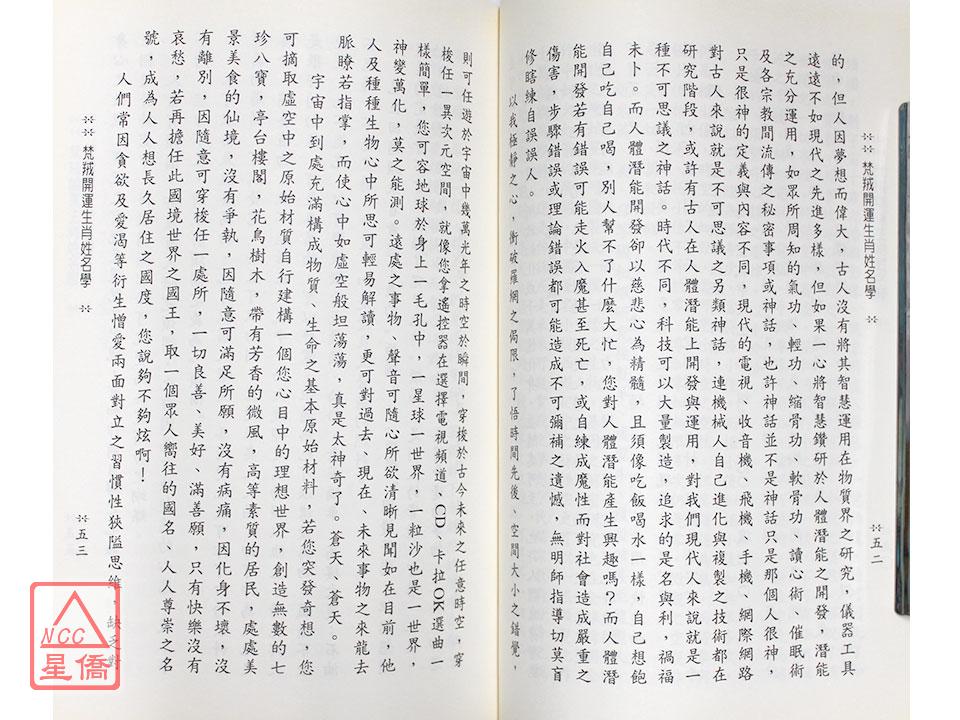 梵羢開運生肖姓名學
五二
的，但人因夢想而偉大，古人沒有將其智慧運用在物質界之研究，儀器工具
遠遠不如現代之先進多樣，但如果一心將智慧鑽研於人體潛能之開發，潛能
之充分運用，如眾所周知的氣功、輕功、縮骨功、軟骨功、讀心術、催眠術
及各宗教間流傳之秘密事項或神話，也許神話並不是神話只是那個人很神，
只是很神的定義與內容不同，現代的電視、收音機、飛機、手機、網際網路
對古人來說就是不可思議之另類神話，連機械人自己進化與複製之技術都在
研究階段，或許有古人在人體潛能上開發與運用，對我們現代人來說就是一
種不可思議之神話。時代不同，科技可以大量製造，追求的是名與利，禍福
未卜。而人體潛能開發卻以慈悲心為精髓，且須像吃飯喝水一樣，自己想飽
自己吃自己喝，別人幫不了什麼大忙，您對人體潛能產生興趣嗎？而人體潛
能開發若有錯誤可能走火入魔甚至死亡，或自練成魔性而對社會造成嚴重之
傷害，步驟錯誤或理論錯誤都可能造成不可彌補之遺憾，無明師指導切莫盲
修瞎練自誤誤人。
以我極靜之心，衝破羅網之侷限，了悟時間先後、空間大小之錯覺，
則可任遊於宇宙中幾萬光年之時空於瞬間，穿梭於古今未來之任意時空，穿
梭任一異次元空間，就像您拿遙控器在選擇電視頻道、CD、卡拉OK選曲一
樣簡單，您可容地球於身上一毛孔中，一星球一世界，一粒沙也是一世界，
神變萬化，莫之能測。遠處之事物、聲音可隨心所欲清晰見聞如在目前，他
人及種種生物心中所思可輕易解讀，更可對過去、現在、未來事物之來龍去
脈瞭若指掌，而使心中如虛空般坦蕩蕩，真是太神奇了。蒼天、蒼天。
宇宙中到處充滿構成物質、生命之基本原始材料，若您突發奇想，您
可摘取虛空中之原始材質自行建構一個您心目中的理想世界，創造無數的七
珍八寶，亭台樓閣，花鳥樹木，帶有芳香的微風，高等素質的居民，處處美
景美食的仙境，沒有爭執，因隨意可滿足所願，沒有病痛，因化身不壞，沒
有離別，因隨意可穿梭任一處所，一切良善、美好、滿善願，只有快樂沒有
哀愁，若再擔任此國境世界之國王，取一個眾人嚮往的國名、人人尊崇之名
號，成為人人想長久居住之國度，您說夠不夠炫啊！
人們常因貪欲及愛渴等衍生憎愛兩面對立之習慣性狹隘思維，缺乏對
梵羢開運生肖姓名學
五三
NCC
星僑